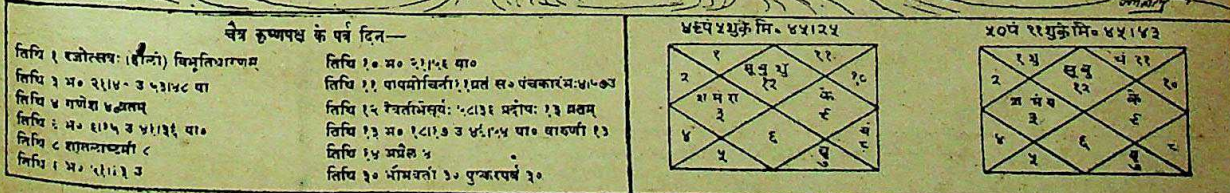 चैत्र कृष्णपक्ष के पर्व दिन—
तिथि १ रजोत्सवः (होली) विभूतिधारणम्
तिथि ३ भ० २१।४० उ ५३।४८ या
तिथि ४ गणेश ४ व्रतम्
तिथि ६ भ० ६।१५ उ ४१।३६ या०
तिथि ८ शीतलाष्टमी ८
तिथि ९ भ०
तिथि १० भ० २१।५६ या०
तिथि ११ पापमोचिनी ११ व्रतं स० पंचकारंभः ४।५७ उ
तिथि १२ रैवतीभेसूर्यः ५८।३६ प्रदोषः १३ व्रतम्
तिथि १३ भ० १८।२७ उ ४६।५५ या० वारुणी १३
तिथि १४ अप्रैल ४
तिथि ३० भौमवती ३० पुष्करपर्व ३०
४९पं ५शुक्रे मि० ४५।२५
१
सू बु शु
१२
११
२
१०
श मं रा
३
के
९
४
६
चं
८
५
गु
५०पं ११शुक्रे मि० ४५।४३
१ शु
सू बु
१२
चं ११
२
१०
श मं रा
३
के
९
४
६
८
५
गु